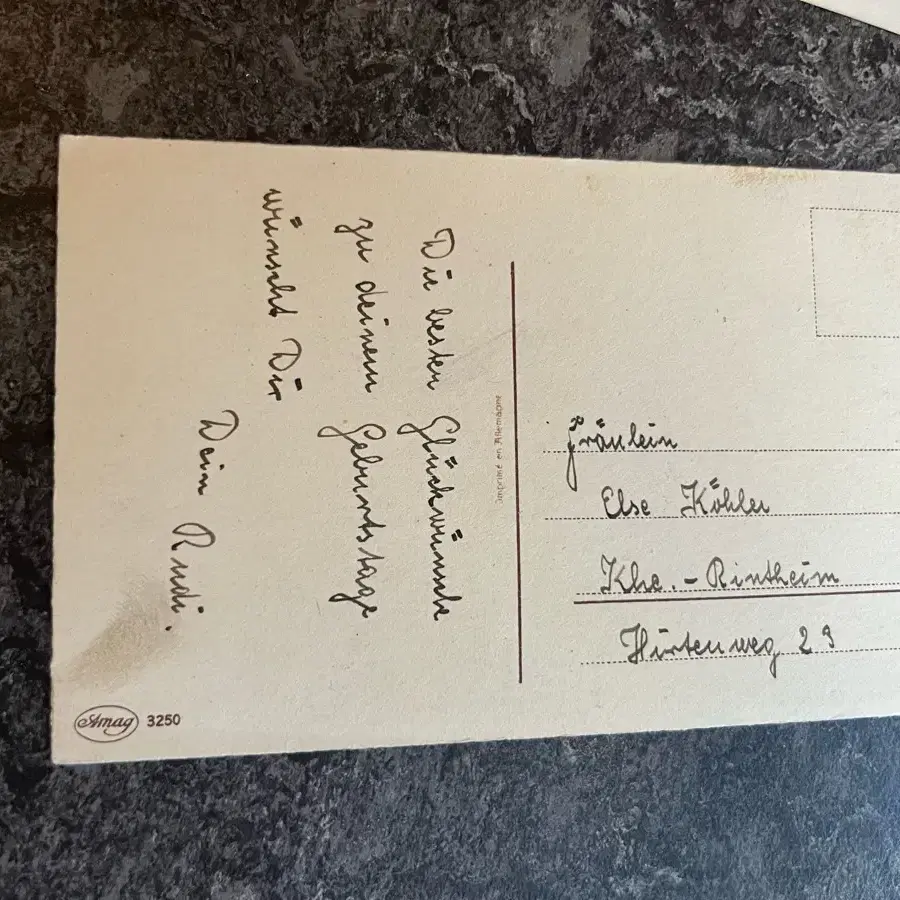 Die besten Glückwünsche
zu deinem Geburtstage
wünscht Dir
Dein Rudi.
Imprimé en Allemagne
Fräulein
Else Köhler
Khe.-Rintheim
Hirtenweg 29
Amag 3250